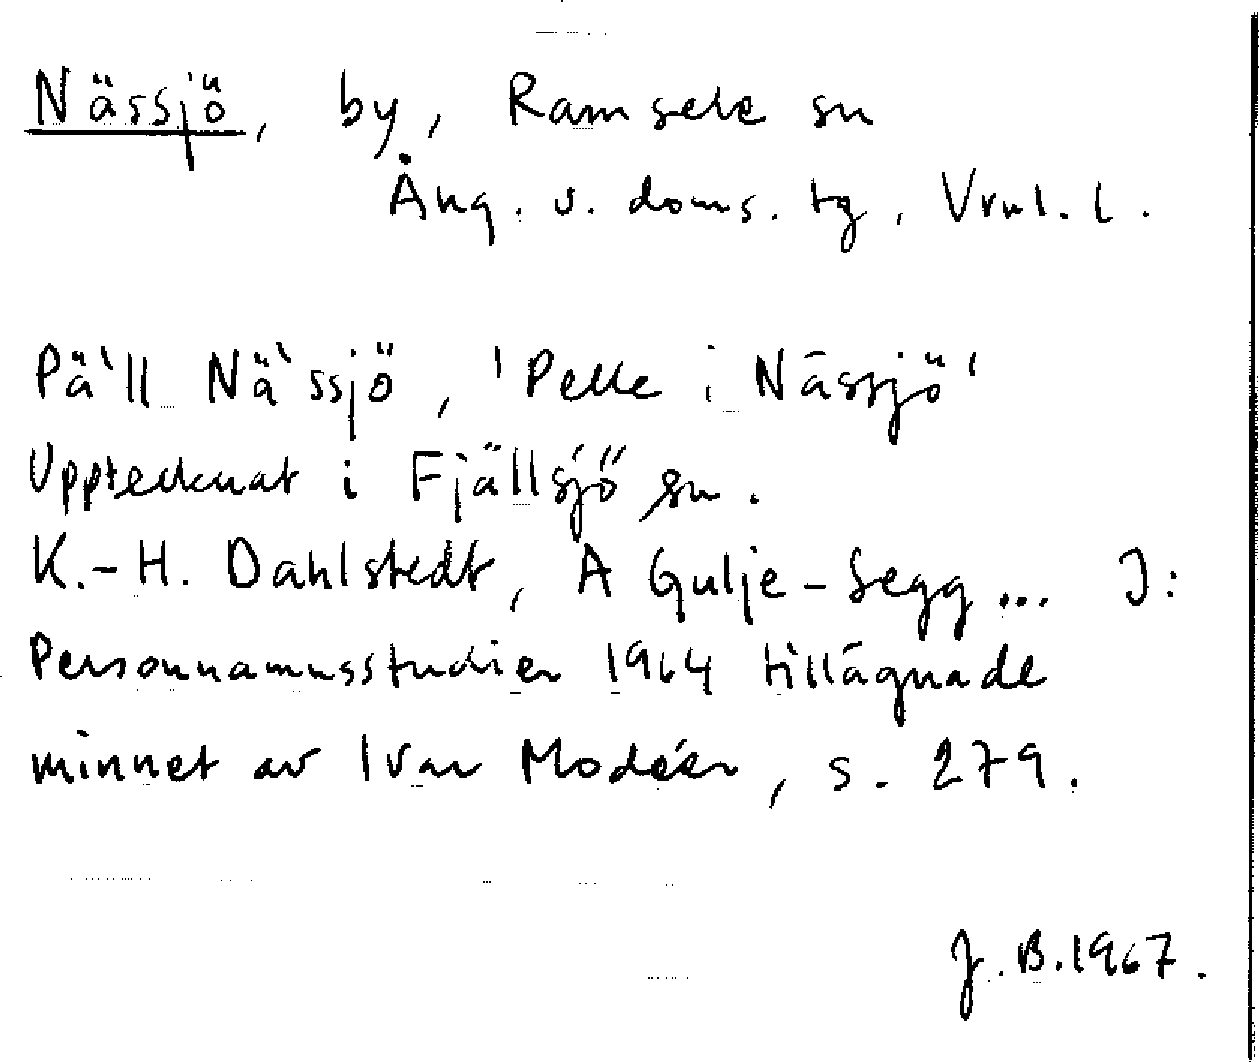 Nässjö, by, Ramsele sn
Ång. v. doms. tg, Vrnl. l.
Pä`ll Nä`ssjö, 'Pelle i Nässjö'
Upptecknat i Fjällsjö sn.
K.-H. Dahlstedt, A Gulje-Segg... I:
Personnamnsstudier 1964 tillägnade
minnet av Ivar Modéer, s. 279.
J.B.1967.